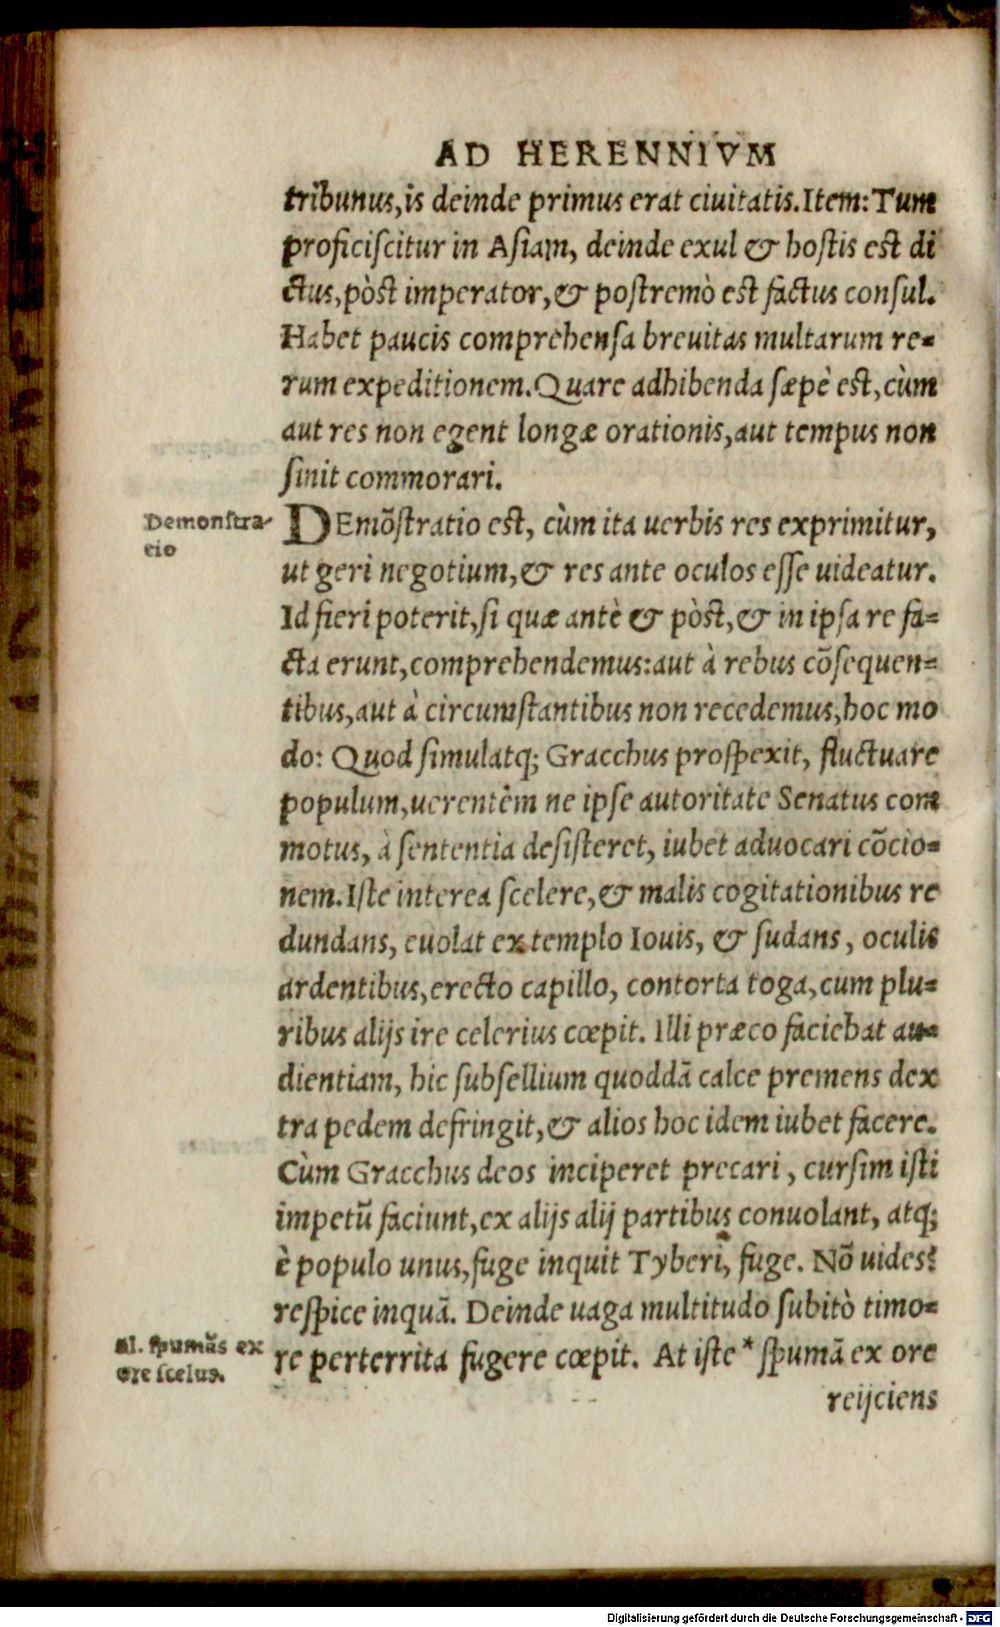 AD HERENNIVM
tribunus,is deinde primus erat ciuitatis.Item:Tum
proficiscitur in Asiam, deinde exul & hostis est di
ctus,pòst imperator,& postremò est factus consul.
Habet paucis comprehensa breuitas multarum re-
rum expeditionem.Quare adhibenda sæpè est,cùm
aut res non egent longæ orationis,aut tempus non
sinit commorari.
Demonstra-
tio
DEmõstratio est, cùm ita uerbis res exprimitur,
ut geri negotium,& res ante oculos esse uideatur.
Id fieri poterit,si quæ antè & pòst,& in ipsa re fa-
cta erunt,comprehendemus:aut à rebus cõsequen-
tibus,aut à circumstantibus non recedemus,hoc mo
do: Quod simulatq; Gracchus prospexit, fluctuare
populum,uerentem ne ipse autoritate Senatus com
motus, à sententia desisteret, iubet aduocari cõcio-
nem.Iste interea scelere,& malis cogitationibus re
dundans, euolat ex templo Iouis, & sudans, oculis
ardentibus,erecto capillo, contorta toga,cum plu-
ribus alijs ire celerius cœpit. Illi præco faciebat au-
dientiam, hic subsellium quoddã calce premens dex
tra pedem defringit,& alios hoc idem iubet facere.
Cùm Gracchus deos inciperet precari, cursim isti
impetũ faciunt,ex alijs alij partibus conuolant, atq;
è populo unus,fuge inquit Tyberi, fuge. Nõ uides?
respice inquã. Deinde uaga multitudo subitò timo-
al. spumãs ex
ore scelus.
re perterrita fugere cœpit. At iste * spumã ex ore
reijciens
Digitalisierung gefördert durch die Deutsche Forschungsgemeinschaft - DFG